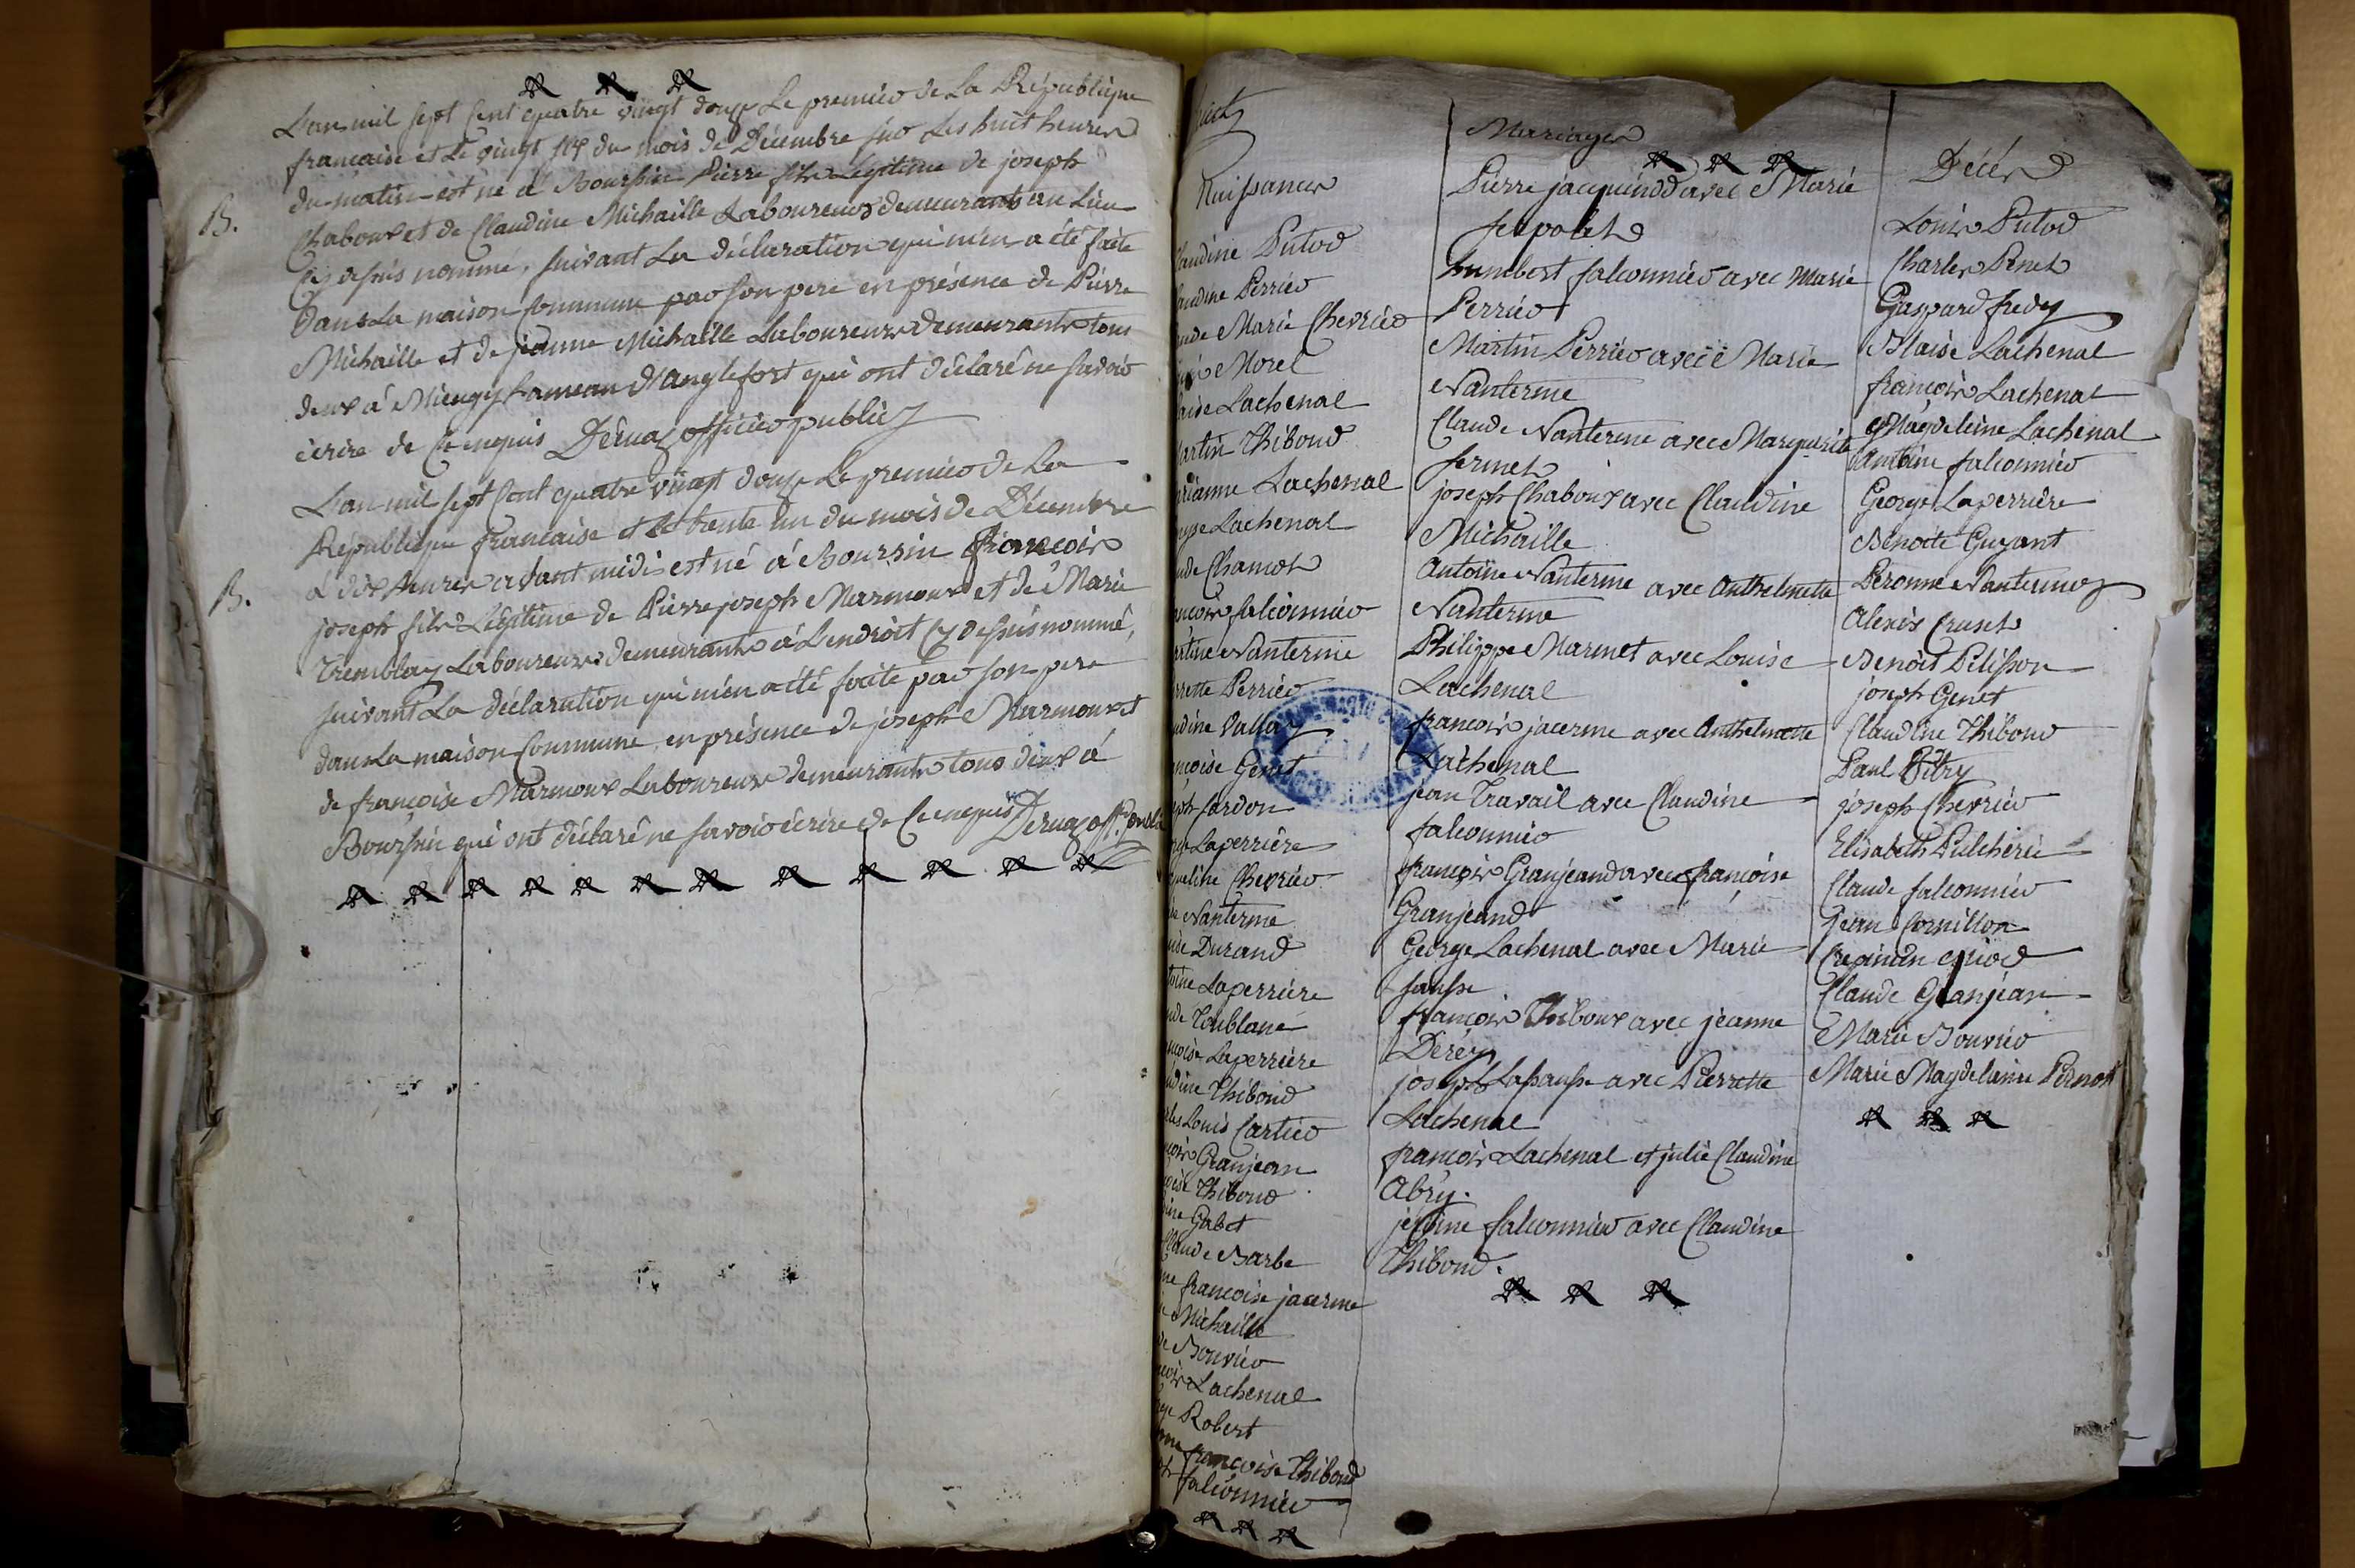 L'an mil sept cent quatre vingt douze Le premier de La République
francaise et Le vingt six du mois de Décembre sur Les huit heures
du matin est né à Boursin Pierre fils Legitime de joseph
B.
Chaboux et de Claudine Michaille Laboureurs demeurants au Lieu
Cy dessus nommé, suivant La déclaration qui m'en a été faite
Dans La maison Commune par son pere en présence de Pierre
Michaille et de jeanne Michaille Laboureurs demeurants tous
deux à hameau d'anglefort qui ont déclaré ne savoir
écrire de Ce enquis Dérnaz officier public
L'an mil sept Cent quatre vingt douze Le premier de La
République francaise et Le trente un du mois de Décembre
à dix heures avant midi est né à Boursin françois
B.
joseph fils Légitime de Pierre joseph Marmoux et de Marie
Tremblay Laboureurs demeurants à Lendroit Cy dessus nommé,
suivant La déclaration qui m'en a été faite par son pere
dans La maison Commune, en présence de joseph Marmoux et
de françoise Marmoux Laboureurs demeurants tous deux à
Boursin qui ont déclaré ne savoir écrire de Ce enquis Dernaz off. public
Naissances
Claudine Putod
Perrier
Marie Chevrier
Morel
Lachenal
Martin Thiboud
Lachenal
Lachenal
Chamot
falconnier
Nanterme
Perrier
Vallay
Genet
Jardon
Laperrière
Chevrier
Nanterme
Durand
Laperrière
Toublanc
Laperrière
Thiboud
Louis Cartier
Granjean
Thiboud
Gabet
Claude Barbe
françoise jacerme
Michaille
Bouvier
Lachenal
Robert
françoise Thiboud
falconnier
Mariages
Pierre jacquinod avec Marie
humbert falconnier avec Marie
Perrier
Martin Perrier avec Marie
Nanterme
Claude Nanterme avec Marguerite
fernet
joseph Chaboux avec Claudine
Michaille
Antoine Nanterme avec Anthelmette
Nanterme
Philippe Marinet avec Louise
Lachenal
françois jacerme avec Anthelmette
Lachenal
jean Travail avec Claudine
falconnier
françois Granjeand avec françoise
Granjeand
George Lachenal avec Marie
françois Thiboux avec jeanne
Derey
joseph Lapausse avec Pierrette
Lachenal
françois Lachenal et julie Claudine
Abry.
falconnier avec Claudine
Thiboud.
Décès
Louis Putod
Charles Penet
Gaspard fredy
Blaise Lachenal
françois Lachenal
Magdeleine Lachenal
Antoine falconnier
George Laperrière
Benoite Guyant
Peronne Nanterme
Alexis Cruset
Benoit Pelisson
joseph Genet
Claudine Thiboud
Paul Bitry
joseph Chevrier
Elisabeth Pulcherie
Claude falconnier
Jean Cornillon
Claude Granjean
Marie Bouvier
Marie Magdelaine Pernot